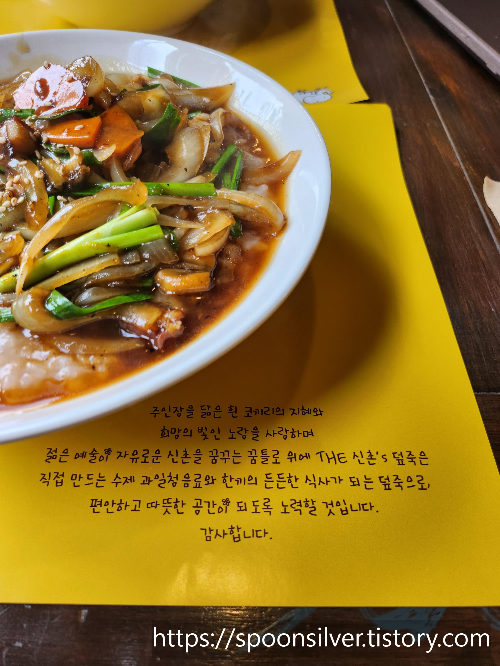 주인장을 닮은 흰 코끼리의 지혜와
희망의 빛인 노랑을 사랑하며
젊은 예술이 자유로운 신촌을 꿈꾸는 꿈틀로 위에 THE 신촌's 덮죽은
직접 만드는 수제 과일청음료와 한끼의 든든한 식사가 되는 덮죽으로,
편안하고 따뜻한 공간이 되도록 노력할 것입니다.
감사합니다.
https://spoonsilver.tistory.com